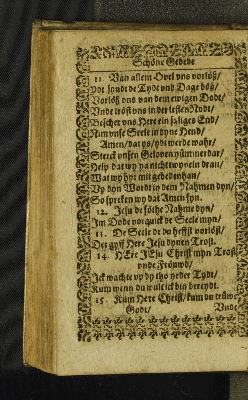 Schöne Gebede
11. Van allem Övel vns vorlöß/
Jdt syndt de Tydt vnd Dage böß/
Vorlöß vns van dem ewigen Dodt/
Vnde tröst vns in der lesten Nodt/
Bescher vns Here ein saliges End/
Nim vnse Seele in dyne Hend/
Amen/ dat ys/ ydt werde wahr/
Sterck vnsen Gelouen ymmerdar/
Help dat wy ya nicht twyueln dran/
Wat wy hyr mit gebeden han/
Vp dyn Wordt in dem Nahmen dyn/
So spreken wy dat Amen fyn.
12. Jesu de söthe Nahme dyn/
Jm Dode vorquick de Seele myn/
13. De Seele de du heffst vorlöst/
Der gyff Here Jesu dynen Trost.
14. HEre JEsu Christ myn Trost
vnde Fröuwd/
Jck wachte vp dy tho yeder Tydt/
Kum wenn du wult ick bin bereydt.
15. Kum Here Christ/ kum du trüwe
Godt/
Vnde